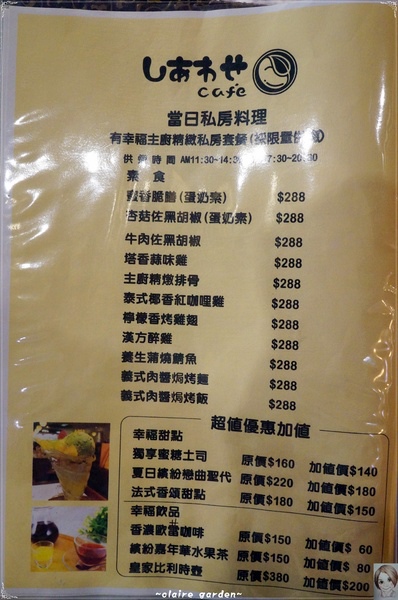 しあわせ
cafe
當日私房料理
有幸福主廚精緻私房套餐(採限量供
供餐時間 AM11:30~14:30 7:30~20:30
素 食
香脆膳(蛋奶素) $288
杏菇佐黑胡椒(蛋奶素) $288
牛肉佐黑胡椒 $288
塔香蒜味雞 $288
主廚精燉排骨 $288
泰式椰香紅咖哩雞 $288
檸檬香烤雞翅 $288
漢方醉雞 $288
養生蒲燒鯛魚 $288
義式肉醬焗烤麵 $288
義式肉醬焗烤飯 $288
超值優惠加值
幸福甜點
獨享蜜糖土司 原價$160 加值價$140
夏日繽紛戀曲聖代 原價$220 加值價$180
法式香頌甜點 原價$180 加值價$150
幸福飲品
香濃歐當咖啡 原價$150 加值價$ 60
繽紛嘉年華水果茶 原價$150 加值價$ 80
皇家比利時壺 原價$380 加值價$200
~claire garden~